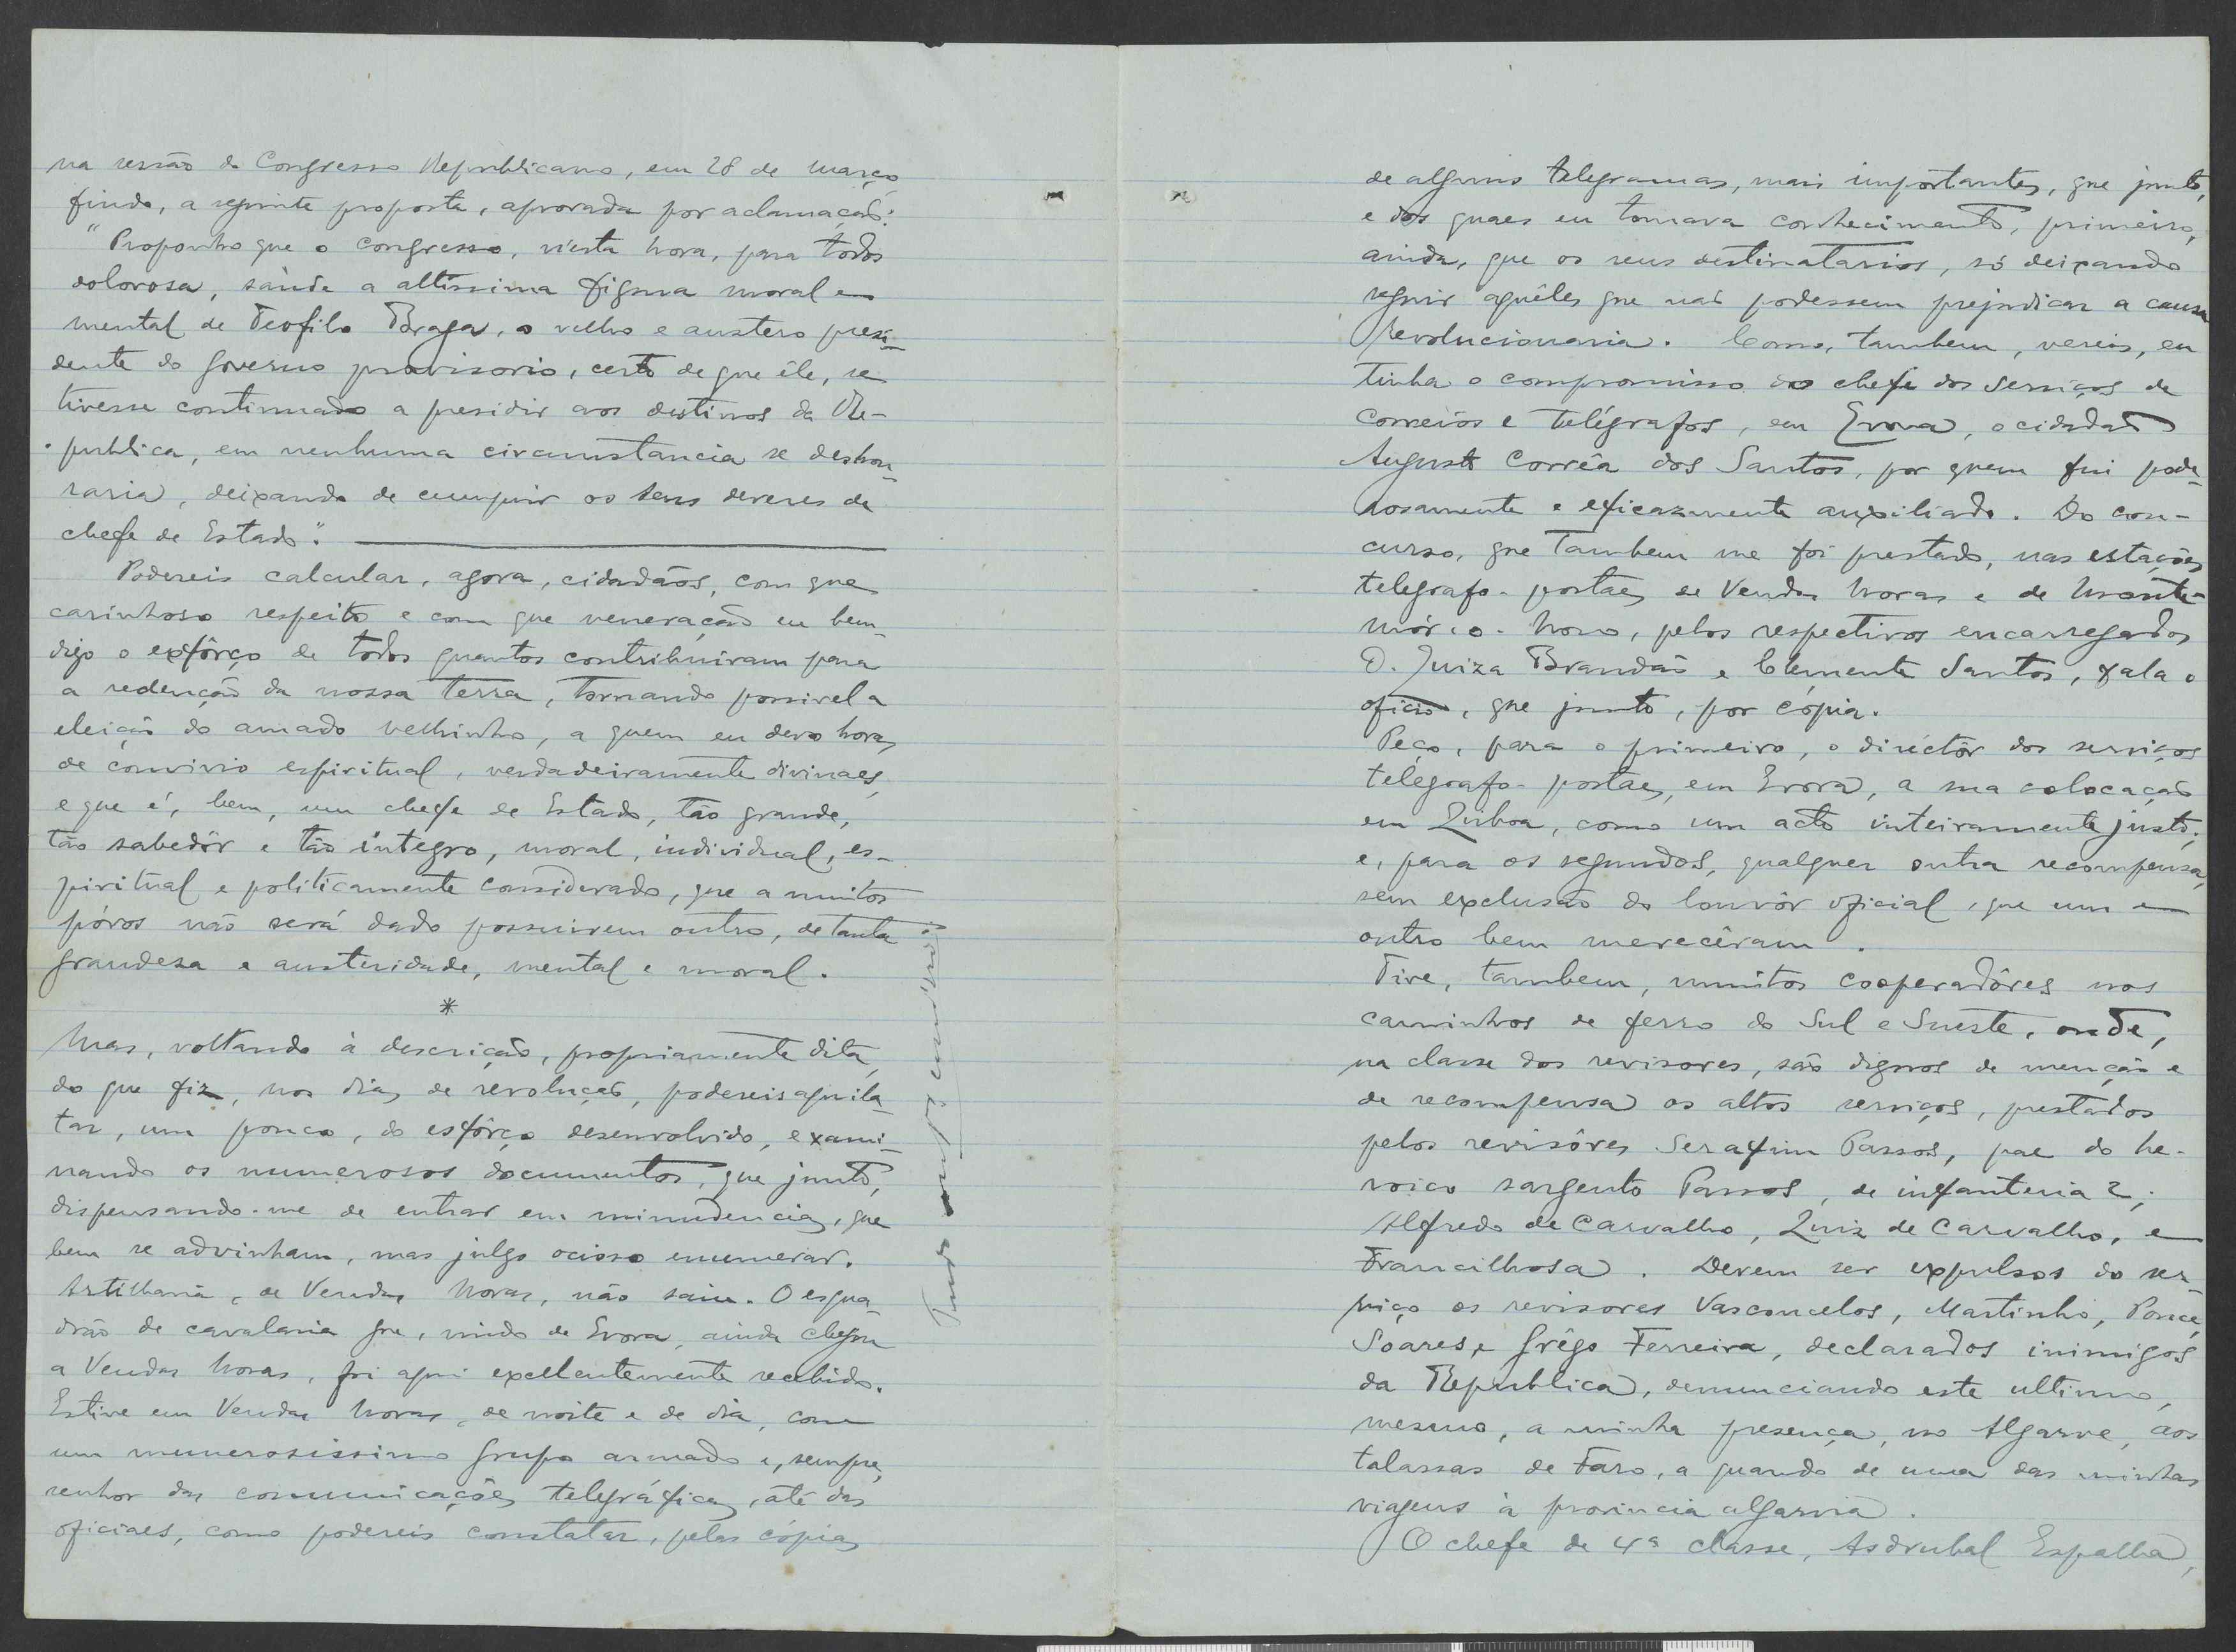 na sessão do Congresso Republicano, em 28 de março
findo, a seguinte proposta, aprovada por aclamação:
"Proponho que o congresso, n'esta hora, para todos
dolorosa, saúde a altissima figura moral e
mental de Teofilo Braga, o velho e austero presi-
dente do governo provisorio, certo de que êle, se
tivesse continuado a presidir aos destinos da Re-
publica, em nenhuma circumstancia se deshon-
raria, deixando de cumprir os seus deveres de
chefe de Estado."
Podereis calcular, agora, cidadãos, com que
carinhoso respeito e com que veneração eu bem-
digo o exfôrço de todos quantos contribuiram para
a redenção da nossa terra, tornando possivel a
eleição do amado velhinho, a quem eu devo horas
de convivio espiritual, verdadeiramente divinaes,
e que é, bem, um chefe de Estado, tão grande,
tão sabedôr e tão íntegro, moral, individual, es-
piritual e politicamente considerado, que a muitos
póvos não será dado possuirem outro, de tanta
grandesa e austeridade, mental e moral.
*
Mas, voltando à descrição, propriamente dita,
do que fiz, nos dias de revolução, podereis aquila-
tar, um pouco, do esfôrço desenvolvido, exami-
nando os numerosos documentos, que junto,
dispensando-me de entrar em minudencias, que
bem se advinham, mas julgo ocioso enumerar.
Artilharia, de Vendas Novas, não saiu. O esqua-
drão de cavalaria que, vindo de Evora, ainda chegou
a Vendas Novas, foi aqui excellentemente recebido.
Estive em Vendas Novas, de noite e de dia, com
um numerosissimo grupo armado e, sempre,
senhor das comunicações telegráficas, até das
oficiaes, como podereis constatar, pelas cópias
de alguns telegramas, mais importantes, que junto,
e dos quaes eu tomava conhecimento, primeiro,
ainda, que os seus destinatarios, só deixando
seguir aquêles que não podessem prejudicar a causa
revolucionaria. Como, tambem, vereis, eu
tinha o compromisso do chefe dos serviços de
correios e telégrafos, em Evora, o cidadão
Augusto Corrêa dos Santos, por quem fui pode-
rosamente e eficazmente auxiliado. Do con-
curso, que tambem me foi prestado, nas estações
telegrafo-postaes de Vendas Novas e de Monte-
mór-o-Novo, pelos respectivos encarregados
D. Luiza Brandão e Clemente Santos, fala o
oficio, que junto, por cópia.
Peço, para o primeiro, o diréctôr dos serviços
telégrafo-postaes, em Evora, a sua colocação
em Lisboa, como um acto inteiramente justo;
e, para os segundos, qualquer outra recompensa,
sem exclusão do louvôr oficial, que um e
outro bem merecêram.
Tive, tambem, muitos cooperadôres nos
caminhos de ferro do Sul e Sueste, onde,
na classe dos revisores, são dignos de menção e
de recompensa os altos serviços, prestados
pelos revisôres Serafim Passos, pae do he-
roico sargento Passos, de infanteria 2;
Alfredo de Carvalho, Luiz de Carvalho, e
Francilhosa. Devem ser expulsos do ser-
viço os revisores Vasconcelos, Martinho, Ponce,
Soares, e Grêgo Ferreira, declarados inimigos
da Republica, denunciando este ultimo,
mesmo, a minha presença, no Algarve, aos
talassas de Faro, a quando de uma das minhas
viagens à provincia algarvia.
O chefe de 4ª classe, Asdrubal Espalha,